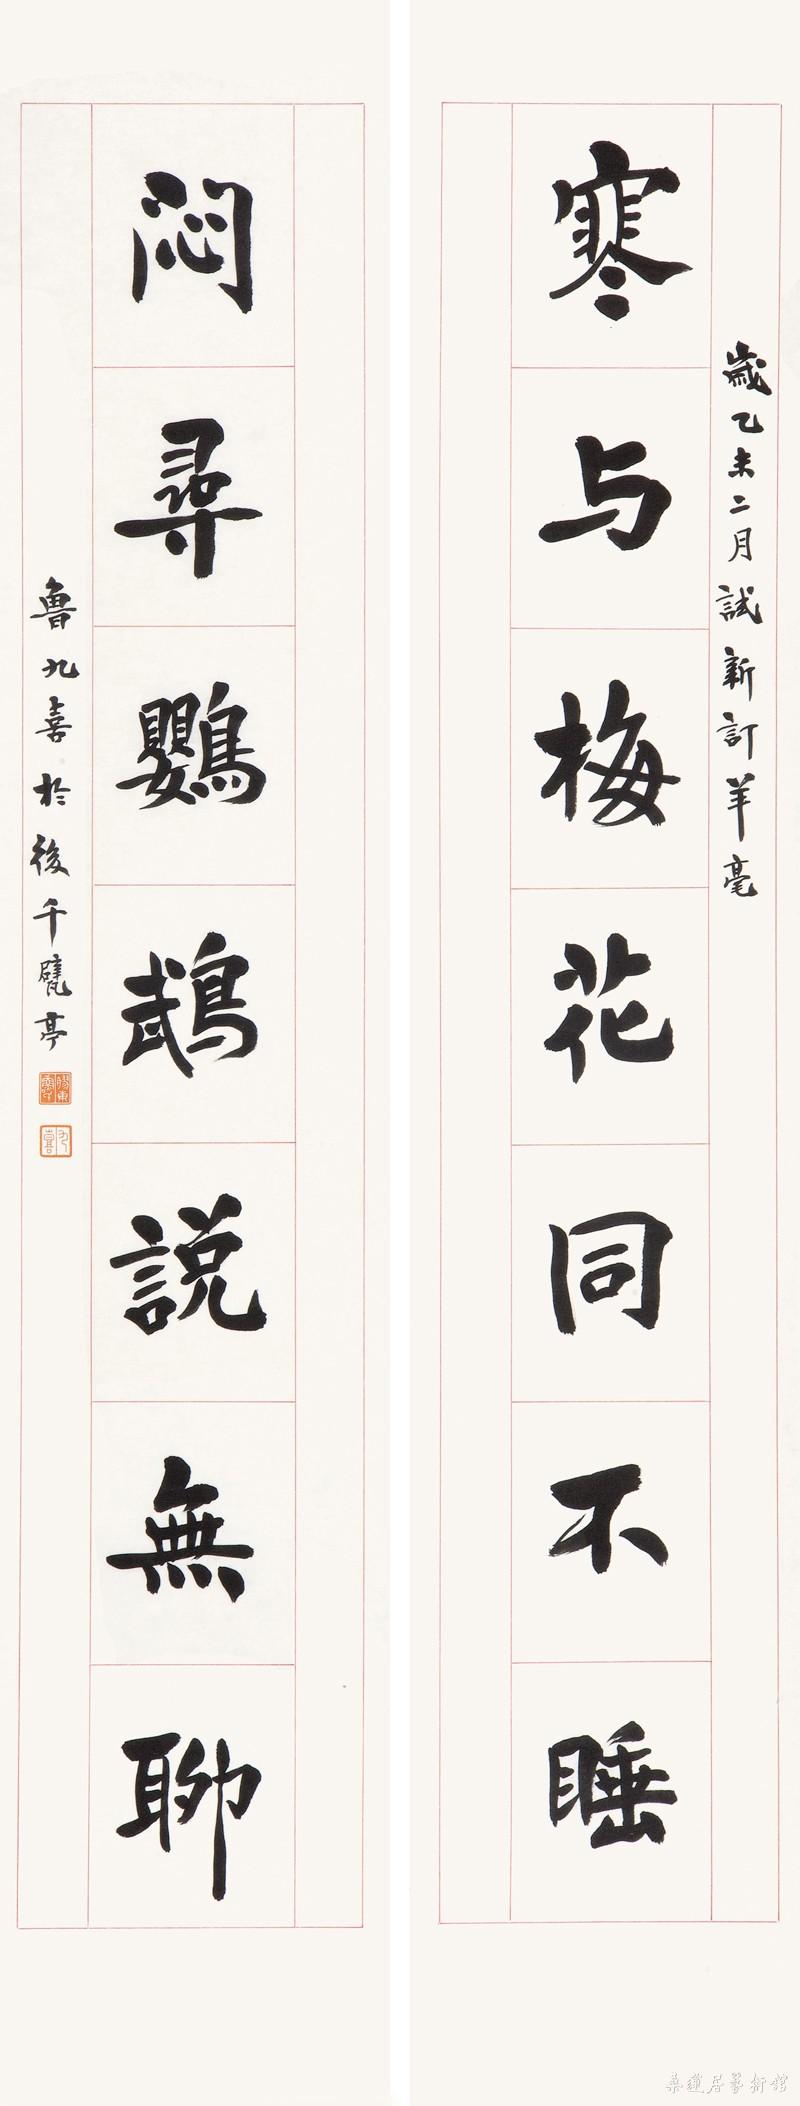 歲乙未二月試新訂羊毫
寒与梅花同不睡
悶尋鸚鵡説無聊
魯九喜於後千甓亭
九喜
藥蓮居藝術館